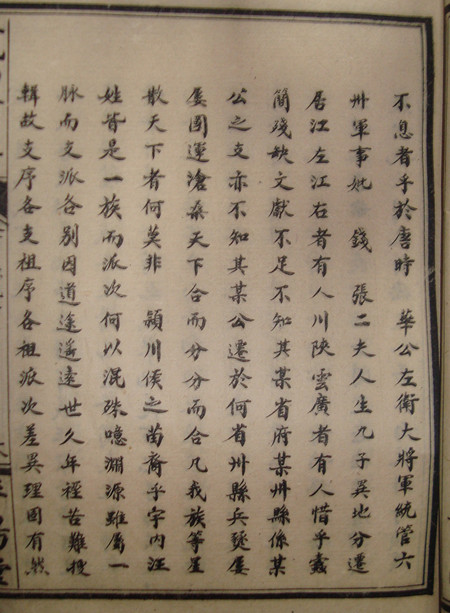 不息者乎於唐時　華公左衛大將軍統管六
州軍事妣　錢　張二夫人生九子異地分遷
居江左江右者有人川陝雲廣者有人惜乎蠹
簡殘缺文獻不足不知其某省府某州縣係某
公之支亦不知其某公遷於何省州縣兵燹屡
屡國運滄桑天下合而分分而合凡我族等星
散天下者何莫非　潁川候之苗裔乎宇内汪
姓皆是一族而派次何以混殊噫淵源雖屬一
脉而支派各別因道途遥遠世久年裎苦難搜
輯故支序各支祖序各祖派次差異理固有然